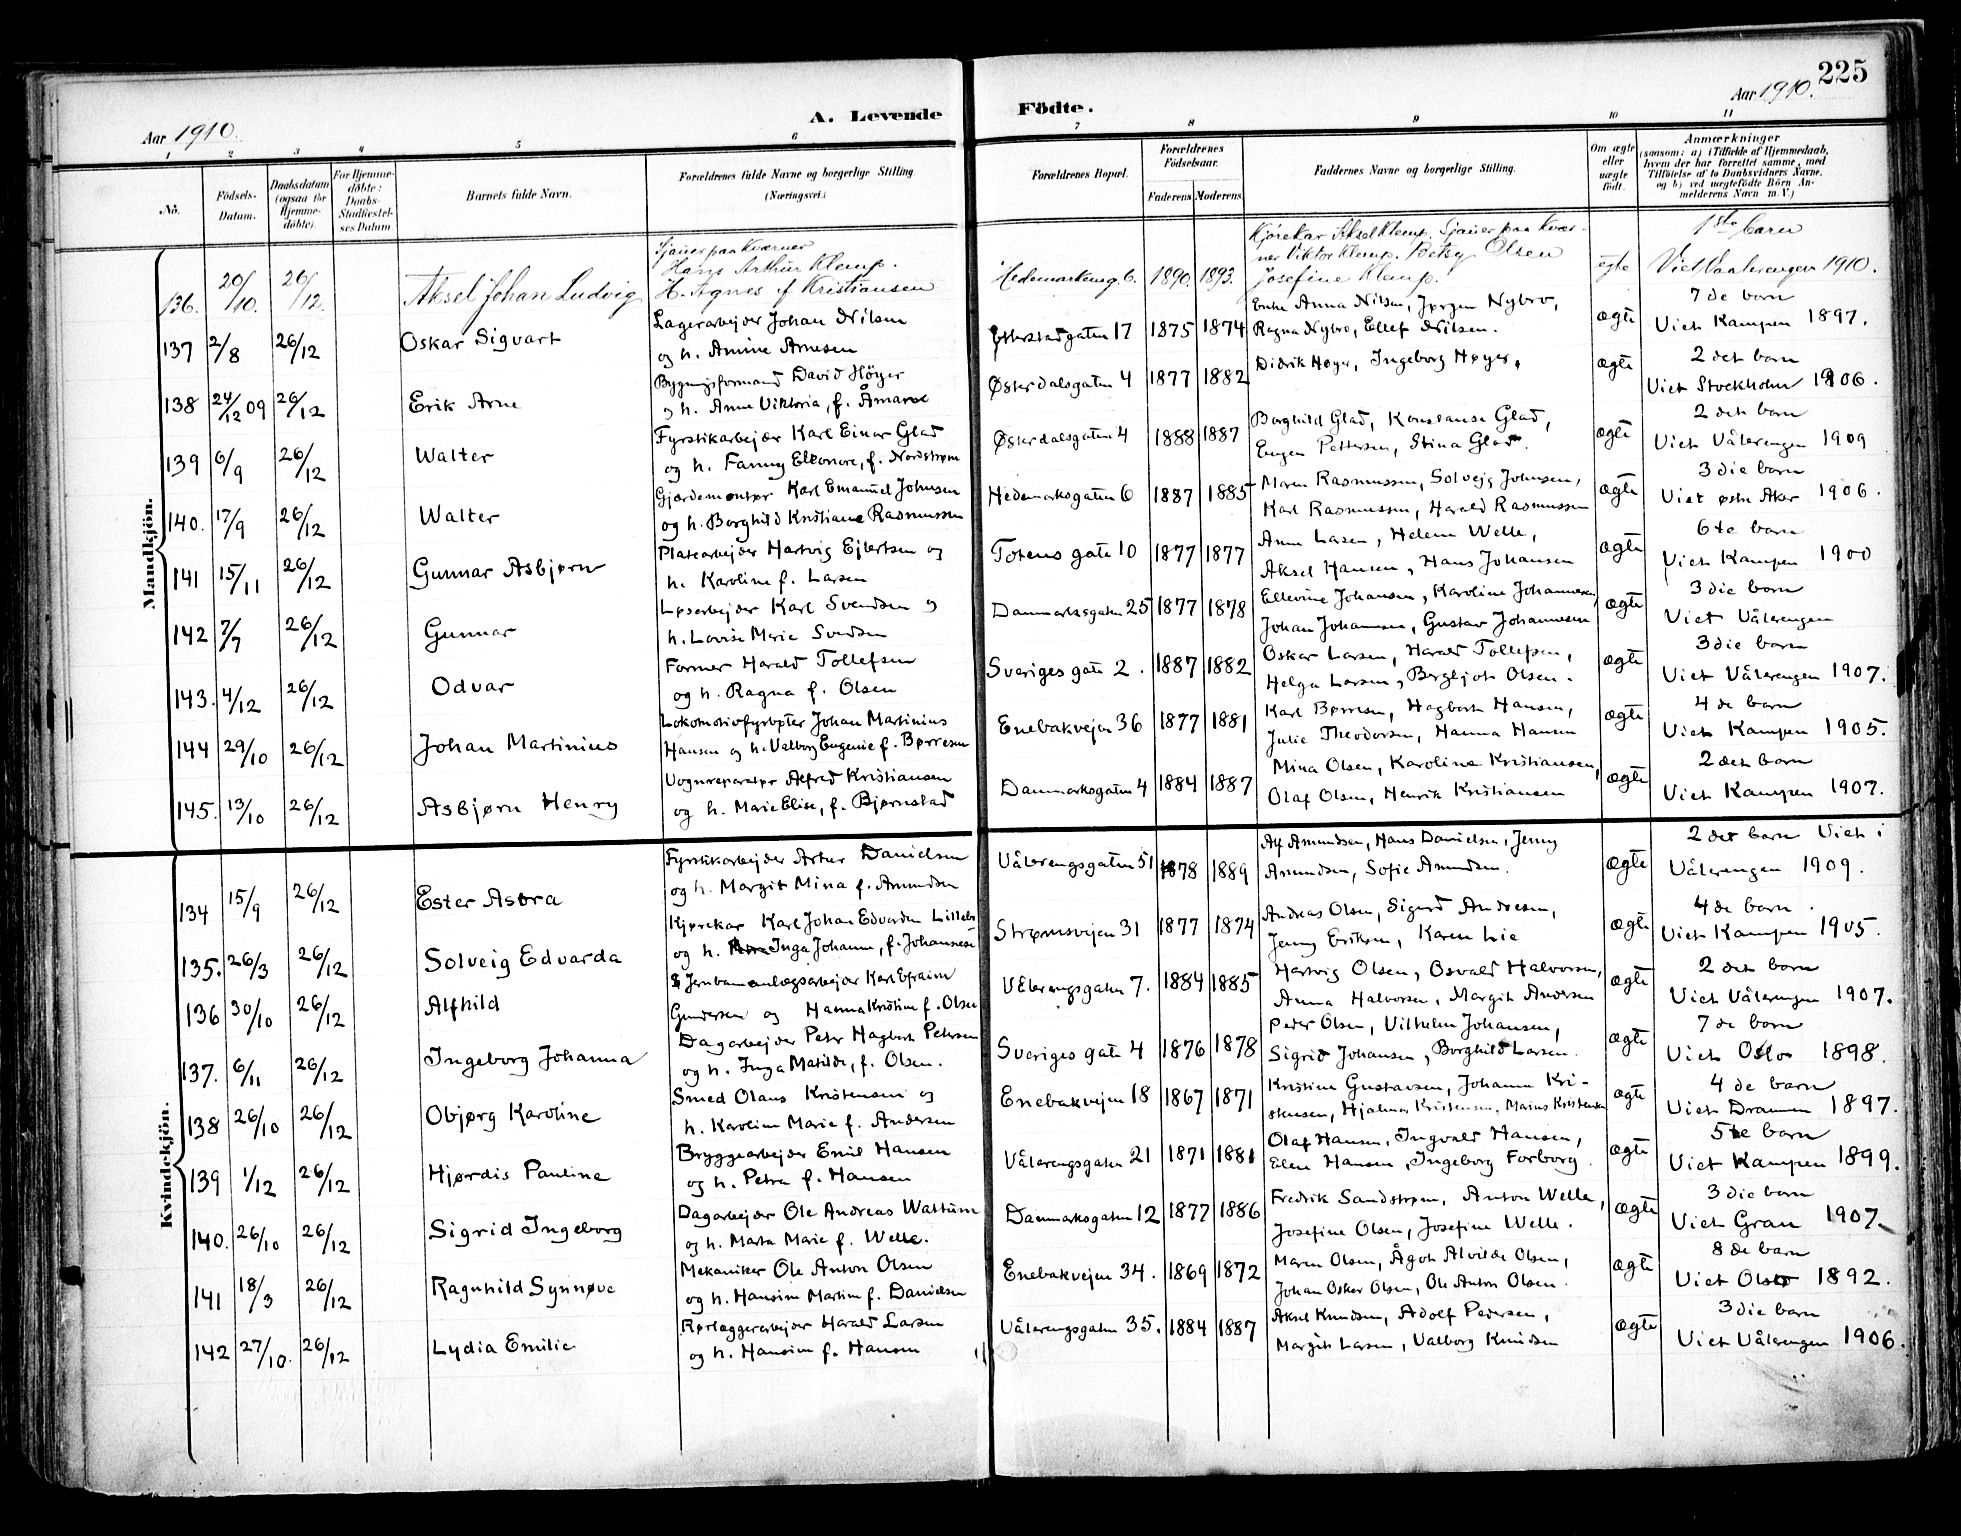 225
Aar 1910.
A. Levende
Födte.
Aar 1910.
1 2 3 4 5 6 7 8 9 10 11
No.
Födsels-Datum.
Daabsdatum (ogsaa for Hjemmedöbte).
For Hjemmedöbte: Daabs-Stadfæstelses Datum
Barnets fulde Navn.
Forældrenes fulde Navne og borgerlige Stilling. (Næringsvei.)
Forældrenes Bopæl.
Forældrenes Födselsaar.
Faderens Moderens
Faddernes Navne og borgerlige Stilling.
Om ægte eller uægte födt.
Anmærkninger
(saasom: a) i Tilfælde af Hjemmedaab, hvem der har forrettet samme, med Tilföielse af to Daabsvidners Navne, og b) ved uægtefödte Börn Anmelderens Navn m. V.)
Mandkjön.
136. 20/10. 26/12. Aksel Johan Ludvig
Sjauer paa Kværner
Hans Arthur Klemp.
H. Agnes f Kristiansen
Hedemarkensg. 6. 1890. 1893.
Kjørekar Aksel Klemp. Sjauer paa Kvær-
ner Viktor Klemp. Betsy Olsen
Josefine Klemp.
egte
1ste barn
Viet Vaalerengen 1910.
137 2/8 26/12 Oskar Sigvart
Lagerarbejder Johan Nilsen
og h. Amine Arnesen
Etterstadgaten 17 1875 1874
Enke Anna Nilsen, Jørgen Nybro,
Ragna Nybro, Ellef Nilsen.
ægte
7 de barn
Viet Kampen 1897.
138 24/12 09 26/12 Erik Arne
Bygningsformand David Höyer
og h. Anna Viktoria, f. Åmaroe
Østerdalsgaten 4 1877 1882
Didrik Høyer, Ingeborg Høyer,
ægte
2 det barn
Viet Stockholm 1906.
139 6/9 26/12 Walter
Fyrstikarbejder Karl Einar Glad
og h. Fanny Elleonore, f. Nordstrøm
Østerdalsgaten 4 1888 1887
Borghild Glad, Konstanse Glad,
Eugen Pettersen, Stina Glad.
ægte
2 det barn
Viet Vålerengen 1909
140. 17/9 26/12 Walter
Gjørdemontør Karl Emanuel Johnsen
og h. Borghild Kristiane Rasmussen
Hedemarksgaten 6 1887 1885
Maren Rasmussen, Solvejg Johnsen,
Karl Rasmussen, Harald Rasmussen
ægte
3 die barn
Viet østre Aker 1906.
141 15/11 26/12 Gunnar Asbjørn
Platearbejder Hartvig Ejlertsen og
h. Karoline f. Larsen
Totens gate 10 1877 1877
Anne Larsen, Helene Welle,
Aksel Hansen, Hans Johansen
ægte
6 te barn
Viet Kampen 1900
142 7/7 26/12 Gunnar
Løsarbejder Karl Svendsen og
h. Lovise Marie Svendsen
Danmarksgaten 25 1877 1878
Ellevine Johansen, Karoline Johannesen,
Johan Johannesen, Gustav Johannesen
ægte
3 die barn
Viet Vålerengen
143. 4/12 26/12 Odvar
Former Harald Tollefsen
og h. Ragna f. Olsen
Sveriges gate 2. 1887 1882
Oskar Larsen, Harald Tollefsen,
Helga Larsen, Bergljot Olsen.
ægte
3 die barn
Viet Vålerengen 1907.
144 29/10 26/12 Johan Martinius
Lokomotivfyrbøter Johan Martinius
Hansen og h. Valborg Eugenie f. Børresen
Enebakvejen 36 1877 1881
Karl Børresen, Hagbarth Hansen,
Julie Theodorsen, Hanna Hansen
ægte
4 de barn
Viet Kampen 1905.
145. 13/10 26/12 Asbjørn Henry
Vognreparatør Alfred Kristiansen
og h. Marie Elise, f. Bjørnstad
Danmarksgaten 4 1884 1887
Mina Olsen, Karoline Kristiansen,
Olaf Olsen, Henrik Kristiansen
ægte
2 det barn
Viet Kampen 1907.
Kvindekjön.
134 15/9 26/12 Ester Astra
Fyrstikarbejder Artur Danielsen
og h. Margit Mina f. Amundsen
Vålerengsgaten 51 1878 1889
Alf Amundsen, Hans Danielsen, Jenny
Amundsen, Sofie Amundsen.
ægte
2 det barn Viet i
Vålerengen 1909.
135. 26/3 26/12 Solveig Edvarda
Kjørekar Karl Johan Edvardin
og h. Inga Johanne, f. Johannesen
Strømsvejen 31 1877 1874
Andreas Olsen, Sigurd Andresen,
Jenny Eriksen, Karen Lie
ægte
4 de barn.
Viet Kampen 1905.
136 30/10 26/12 Alfhild
Jernbaneanlægsarbejder Karl Efraim
Gundersen og Hanna Kristine f. Olsen
Vålerengsgaten 7. 1884 1885
Hartvig Olsen, Osvald Halvorsen,
Anna Halvorsen, Margit Andersen
ægte
2 det barn
Viet Vålerengen 1907.
137. 6/11 26/12 Ingeborg Johanna
Dagarbejder Peter Hagbart Petersen
og h. Inga Matilde, f. Olsen.
Sveriges gate 4 1876 1878
Peder Olsen, Vilhelm Johansen,
Sigrid Johansen, Borghild Larsen.
ægte
7 de barn
Viet Oslo 1898.
138 26/10 26/12 Objørg Karoline
Smed Olaus Kristensen og
h. Karoline Marie f. Andersen
Enebakvejen 18 1867 1871
Kristine Gustavsen, Johanne Kri-
stensen, Hjalmar Kristensen, Marius Kristensen
ægte
4 de barn
Viet Drammen 1897.
139 1/12 26/12 Hjørdis Pauline
Bryggearbejder Emil Hansen
og h. Petra f. Hansen
Vålerengsgaten 21 1871 1881
Olaf Hansen, Ingvald Hansen,
Elen Hansen, Ingeborg Forborg.
ægte
5 te barn
Viet Kampen 1899.
140. 26/10 26/12 Sigrid Ingeborg
Dagarbejder Ole Andreas Wattum
og h. Marta Marie f. Welle.
Danmarksgaten 12 1877 1886
Fredrik Sandstrøm, Anton Welle,
Josefine Olsen, Josefine Welle.
ægte
3 die barn
Viet Gran 1907.
141 18/3 26/12 Ragnhild Synnøve
Mekaniker Ole Anton Olsen
og h. Hansine Martine f. Danielsen
Enebakvejen 34. 1869 1872
Maren Olsen, Ågot Alvilde Olsen,
Johan Oskar Olsen, Ole Anton Olsen.
ægte
8 de barn
Viet Oslo 1892.
142 27/10. 26/12 Lydia Emilie
Rørlæggerarbejder Harald Larsen
og h. Hansine f. Hansen
Vålerengsgaten 35. 1884 1887
Aksel Knudsen, Adolf Pedersen,
Margith Larsen, Valborg Knudsen
ægte
3 die barn
Viet Vålerengen 1906.